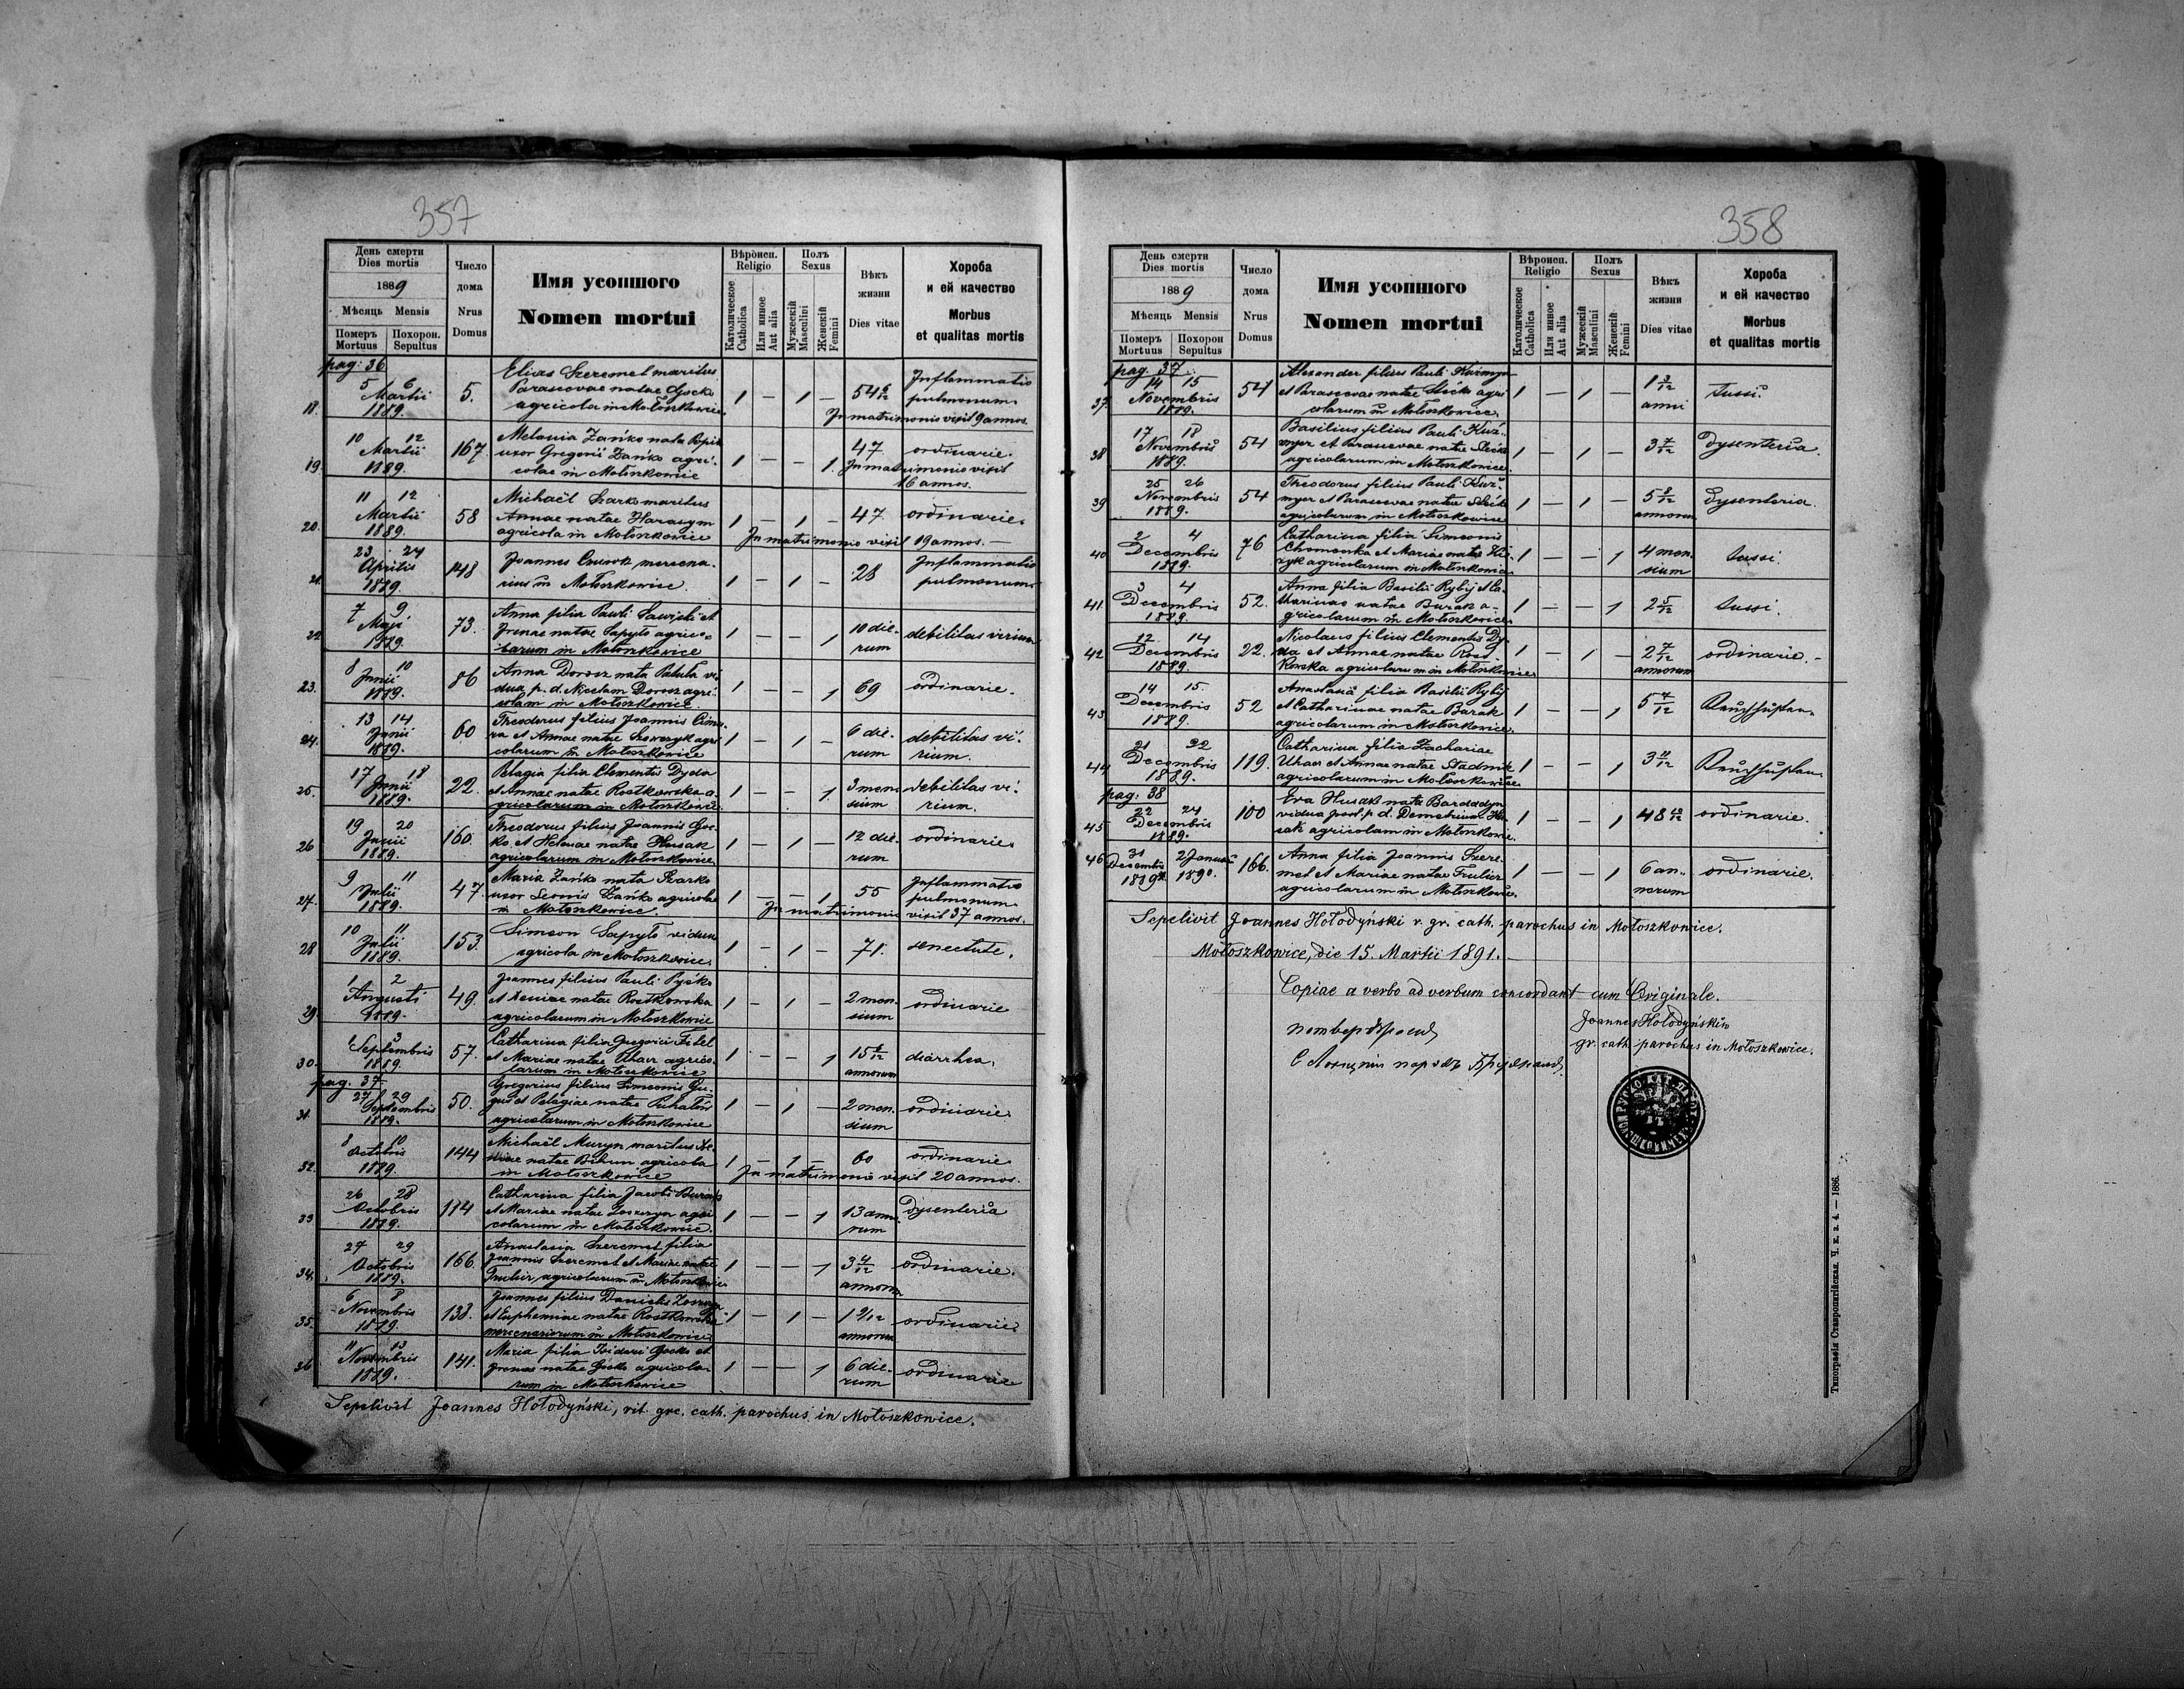 357
День смерти
Dies mortis
1889
Мѣсяць Mensis
Померъ Похорон.
Mortuus Sepultus
Число
дома
Nrus
Domus
Имя усопшого
Nomen mortui
Вѣроисп.
Religio
Католическое
Catholica
Или иное
Aut alia
Полъ
Sexus
Мужескій
Masculini
Женскій
Femini
Вѣкъ
жизни
Dies vitae
Хороба
и ей качество
Morbus
et qualitas mortis
pag: 36
18. 5 6 Martii 1889. 5. Elias Szeremet maritus
Parascevae natae Gocko
agricola in Mołoszkowice
1 — 1 — 54 6/12 Inflammatio pulmonum
In matrimonio vixit 9 annos.
19. 10 12 Martii 1889. 167. Melania Zańko nata
uxor Gregorii Zańko agri-
colae in Mołoszkowice
1 — — 1. 47 ordinarie.
In matrimonio vixit
16 annos.
20. 11 12 Martii 1889. 58 Michaël Szarko maritus
Annae natae Harasym
agricola in Mołoszkowice
1 — 1 — 47 ordinarie.
In matrimonio vixit 19 annos. —
21. 23 24 Aprilis 1889. 148 Joannes mercena-
rius in Mołoszkowice
1 — 1 — 28 Inflammatio pulmonum
22. 7 9 Maji 1889. 73. Anna filia Pauli et
Irenae natae Sapyło agrico-
larum in Mołoszkowice
1 — — 1 10 die-rum debilitas virium
23. 8 10 Junii 1889. 86 Anna Dorosz nata vi-
dua p. d. Dorosz agri-
colam in Mołoszkowice
1 — — 1 69 ordinarie.
24. 13 14 Junii 1889. 60 Theodorus filius Joannis
et Annae natae agri-
colarum in Mołoszkowice
1 — 1 — 6 die-rum debilitas vi-rium.
25. 17 18 Junii 1889. 22. Pelagia filia Clementis Dyda
et Annae natae Rostkowska a-
gricolarum in Mołoszkowice
1 — — 1. 3 men-sium debilitas vi-rium.
26. 19 20 Junii 1889. 160. Theodorus filius Joannis Goc-
ko et Helenae natae Husak
agricolarum in Mołoszkowice
1 — 1 — 12 die-rum ordinarie.
27. 9 11 Julii 1889. 47. Maria Zańko nata Szarko
uxor Leonis Zańko agricolae
in Mołoszkowice.
1 — — 1 55 Inflammatio pulmonum
In matrimonio vixit 37 annos.
28 10 11 Julii 1889. 153. Simeon Sapyło viduus
agricola in Mołoszkowice
1 — 1 — 71. senectute.
29. 1 2 Augusti 1889. 49. Joannes filius Pauli
et Xeniae natae Rostkowska
agricolarum in Mołoszkowice
1 — 1 — 2 men-sium ordinarie
30. 1 3 Septembris 1889. 57. Catharina filia Gregorii
et Mariae natae Uhacz agrico-
larum in Mołoszkowice
1 — — 1 annorum diarrhea.
pag. 37
31. 27 29 Septembris 1889. 50. Gregorius filius Simeonis
et Pelagiae natae
agricolarum in Mołoszkowice
1 — 1 — 2 men-sium ordinarie
32. 8 10 Octobris 1889 144 Michaël Muryn maritus Xe-
niae natae Bihun agricola
in Mołoszkowice
1 — 1 — 60 ordinarie
In matrimonio vixit 20 annos.
33 26 28 Octobris 1889. 114 Catharina filia Jacobi Burak
et Mariae natae agri-
colarum in Mołoszkowice
1 — — 1 13 anno-rum Dysenteria
34. 27 29 Octobris 1889. 166. Anastasia Szeremet filia
Joannis Szeremet et Mariae natae
agricolarum in Mołoszkowice
1 — — 1 3 4/12 annorum ordinarie.
35. 6 8 Novembris 1889 138. Joannes filius Danielis
et Euphemiae natae Rostkowska
mercenariorum in Mołoszkowice
1 — 1 — annorum ordinarie.
36 11 13 Novembris 1889. 141. Maria filia Isidori Gocko et
Irenae natae Gocko agricola-
rum in Mołoszkowice
1 — — 1 6 die-rum ordinarie
Sepelivit Joannes Hołodyński, rit. gr. cath. parochus in Mołoszkowice.
358
День смерти
Dies mortis
1889
Мѣсяць Mensis
Померъ Похорон
Mortuus Sepultus
Число
дома
Nrus
Domus
Имя усопшого
Nomen mortui
Вѣроисп.
Religio
Католическое
Catholica
Или иное
Aut alia
Полъ
Sexus
Мужескій
Masculini
Женскій
Femini
Вѣкъ
жизни
Dies vitae
Хороба
и ей качество
Morbus
et qualitas mortis
pag. 37.
37. 14 15 Novembris 1889. 54 Alexander filius Pauli
et Parascevae natae agri-
colarum in Mołoszkowice.
1 — 1 — 1 3/12 anni tussi.
38 17 18 Novembris 1889. 54 Basilius filius Pauli Kuź-
mycz et Parascevae natae
agricolarum in Mołoszkowice.
1 — 1 — 3 7/12 Dysenteria.
39 25 26 Novembris 1889. 54 Theodorus filius Pauli Kuź-
mycz et Parascevae natae
agricolarum in Mołoszkowice
1 — 1 — 5 8/12 annorum Dysenteria.
40 2 4 Decembris 1889. 76 Catharina filia Simeonis
et Mariae natae
agricolarum in Mołoszkowice
1 — — 1 4 men-sium tussi.
41. 3 4 Decembris 1889. 52. Anna filia Basilii Rybij et Ca-
tharinae natae Burak a-
gricolarum in Mołoszkowice
1 — — 1 2 5/12 tussi.
42 12 14 Decembris 1889. 22. Nicolaus filius Clementis Dy-
da et Annae natae Rost-
kowska agricolarum in Mołoszkowice
1 — 1 — 2 7/12 annorum ordinarie. —
43 14 15. Decembris 1889. 52 Anastasia filia Basilii Rybij
et Catharinae natae Burak
agricolarum in Mołoszkowice.
1 — — 1 5 4/12
44 21 22 Decembris 1889. 119. Catharina filia Zachariae
Uhacz et Annae natae Stadnik
agricolarum in Mołoszkowice
1 — — 1
pag: 38
45 22 24 Decembris 1889. 100 Eva Husak nata
vidua post p. d. Demetrium Hu-
sak agricolam in Mołoszkowice.
1 — — 1 48 ordinarie.
46 31 Decembris 1889 2 Januarii 1890. 166. Anna filia Joannis Szere-
met et Mariae natae
agricolarum in Mołoszkowice.
1 — — 1 6 an-norum ordinarie.
Sepelivit Joannes Hołodyński r. gr. cath. parochus in Mołoszkowice.
Mołoszkowice, die 15. Martii 1891.
Copiae a verbo ad verbum concordant cum Originale.
Joannes Hołodyński
gr. cath. parochus in Mołoszkowice.
Типографія Ставропигійская. Ч. к. з. 4. — 1886.